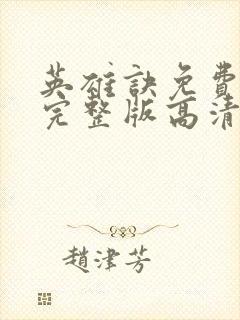 英雄訣免費
完整版高清
趙津芳